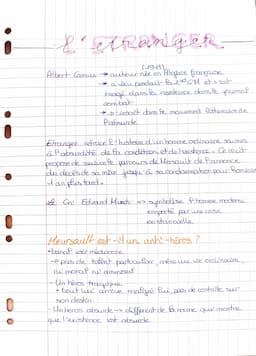 L'ETRANGER
(1913)
Albert Camus → auteur née en Algérie française
→ a vécu pendant la GM et s'est
engagé dans la résistance dans le journal
combat
→ s'inscrit dans le mouvement littéraire de
l'absurde
Etranger retrace l'histoire d'un homme ordinaire soumis
à l'absurdité de la condition et de l'existence. Ce récit
propose de suivre le parcours de Meursault de l'annonce
du décès de sa mère jusqu'à sa condamnation pour
1 an plus tard.
Cri Edvard Munch => symbolise l'homme moderne
emporté par une crise
existentielle
Meursault est-il un anti-héros ?
médiocre
→ pas de talent particulier, mène une vie ordinaire,
ni moral ni immoral
- Un héros tragique
• tout lui arrive malgré lui, pas de contrôle sur
son destin
- Un héros absurde → différent de la norme qui montre
que l'existence est absurde